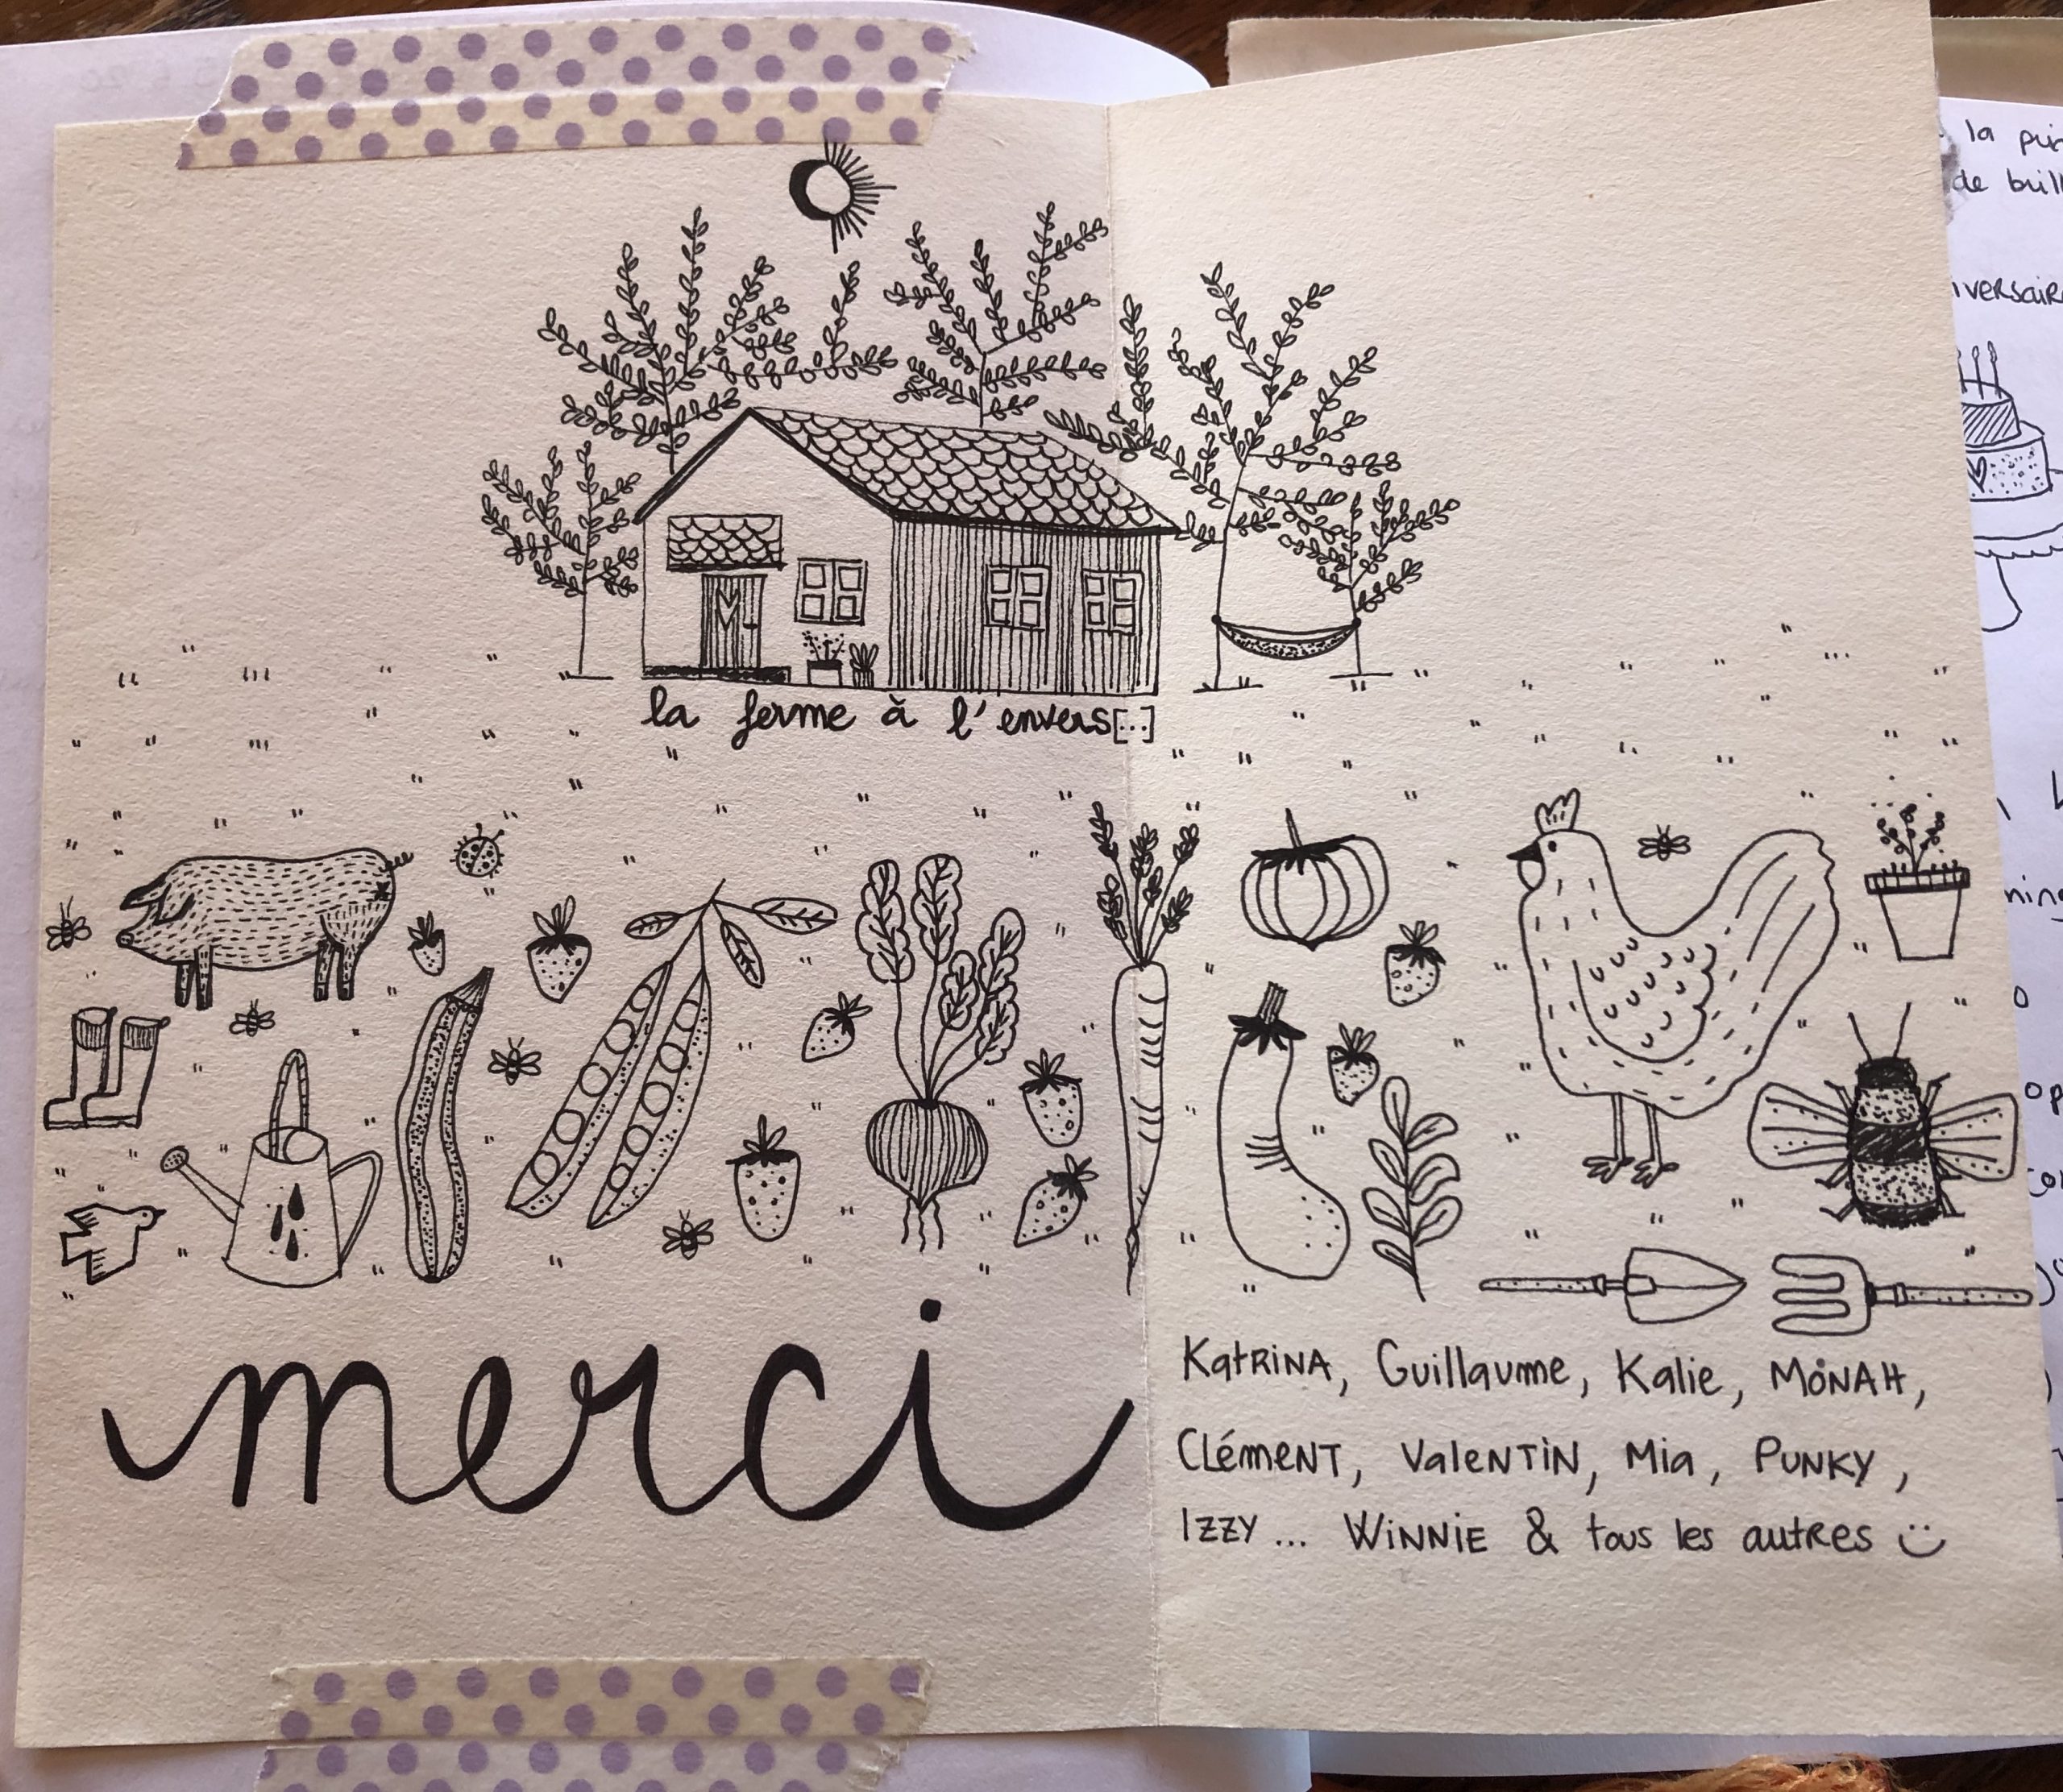 la ferme à l'envers[...]
merci
Katrina, Guillaume, Kalie, Mònah,
Clément, Valentin, Mia, Punky,
Izzy... Winnie & tous les autres
la
de